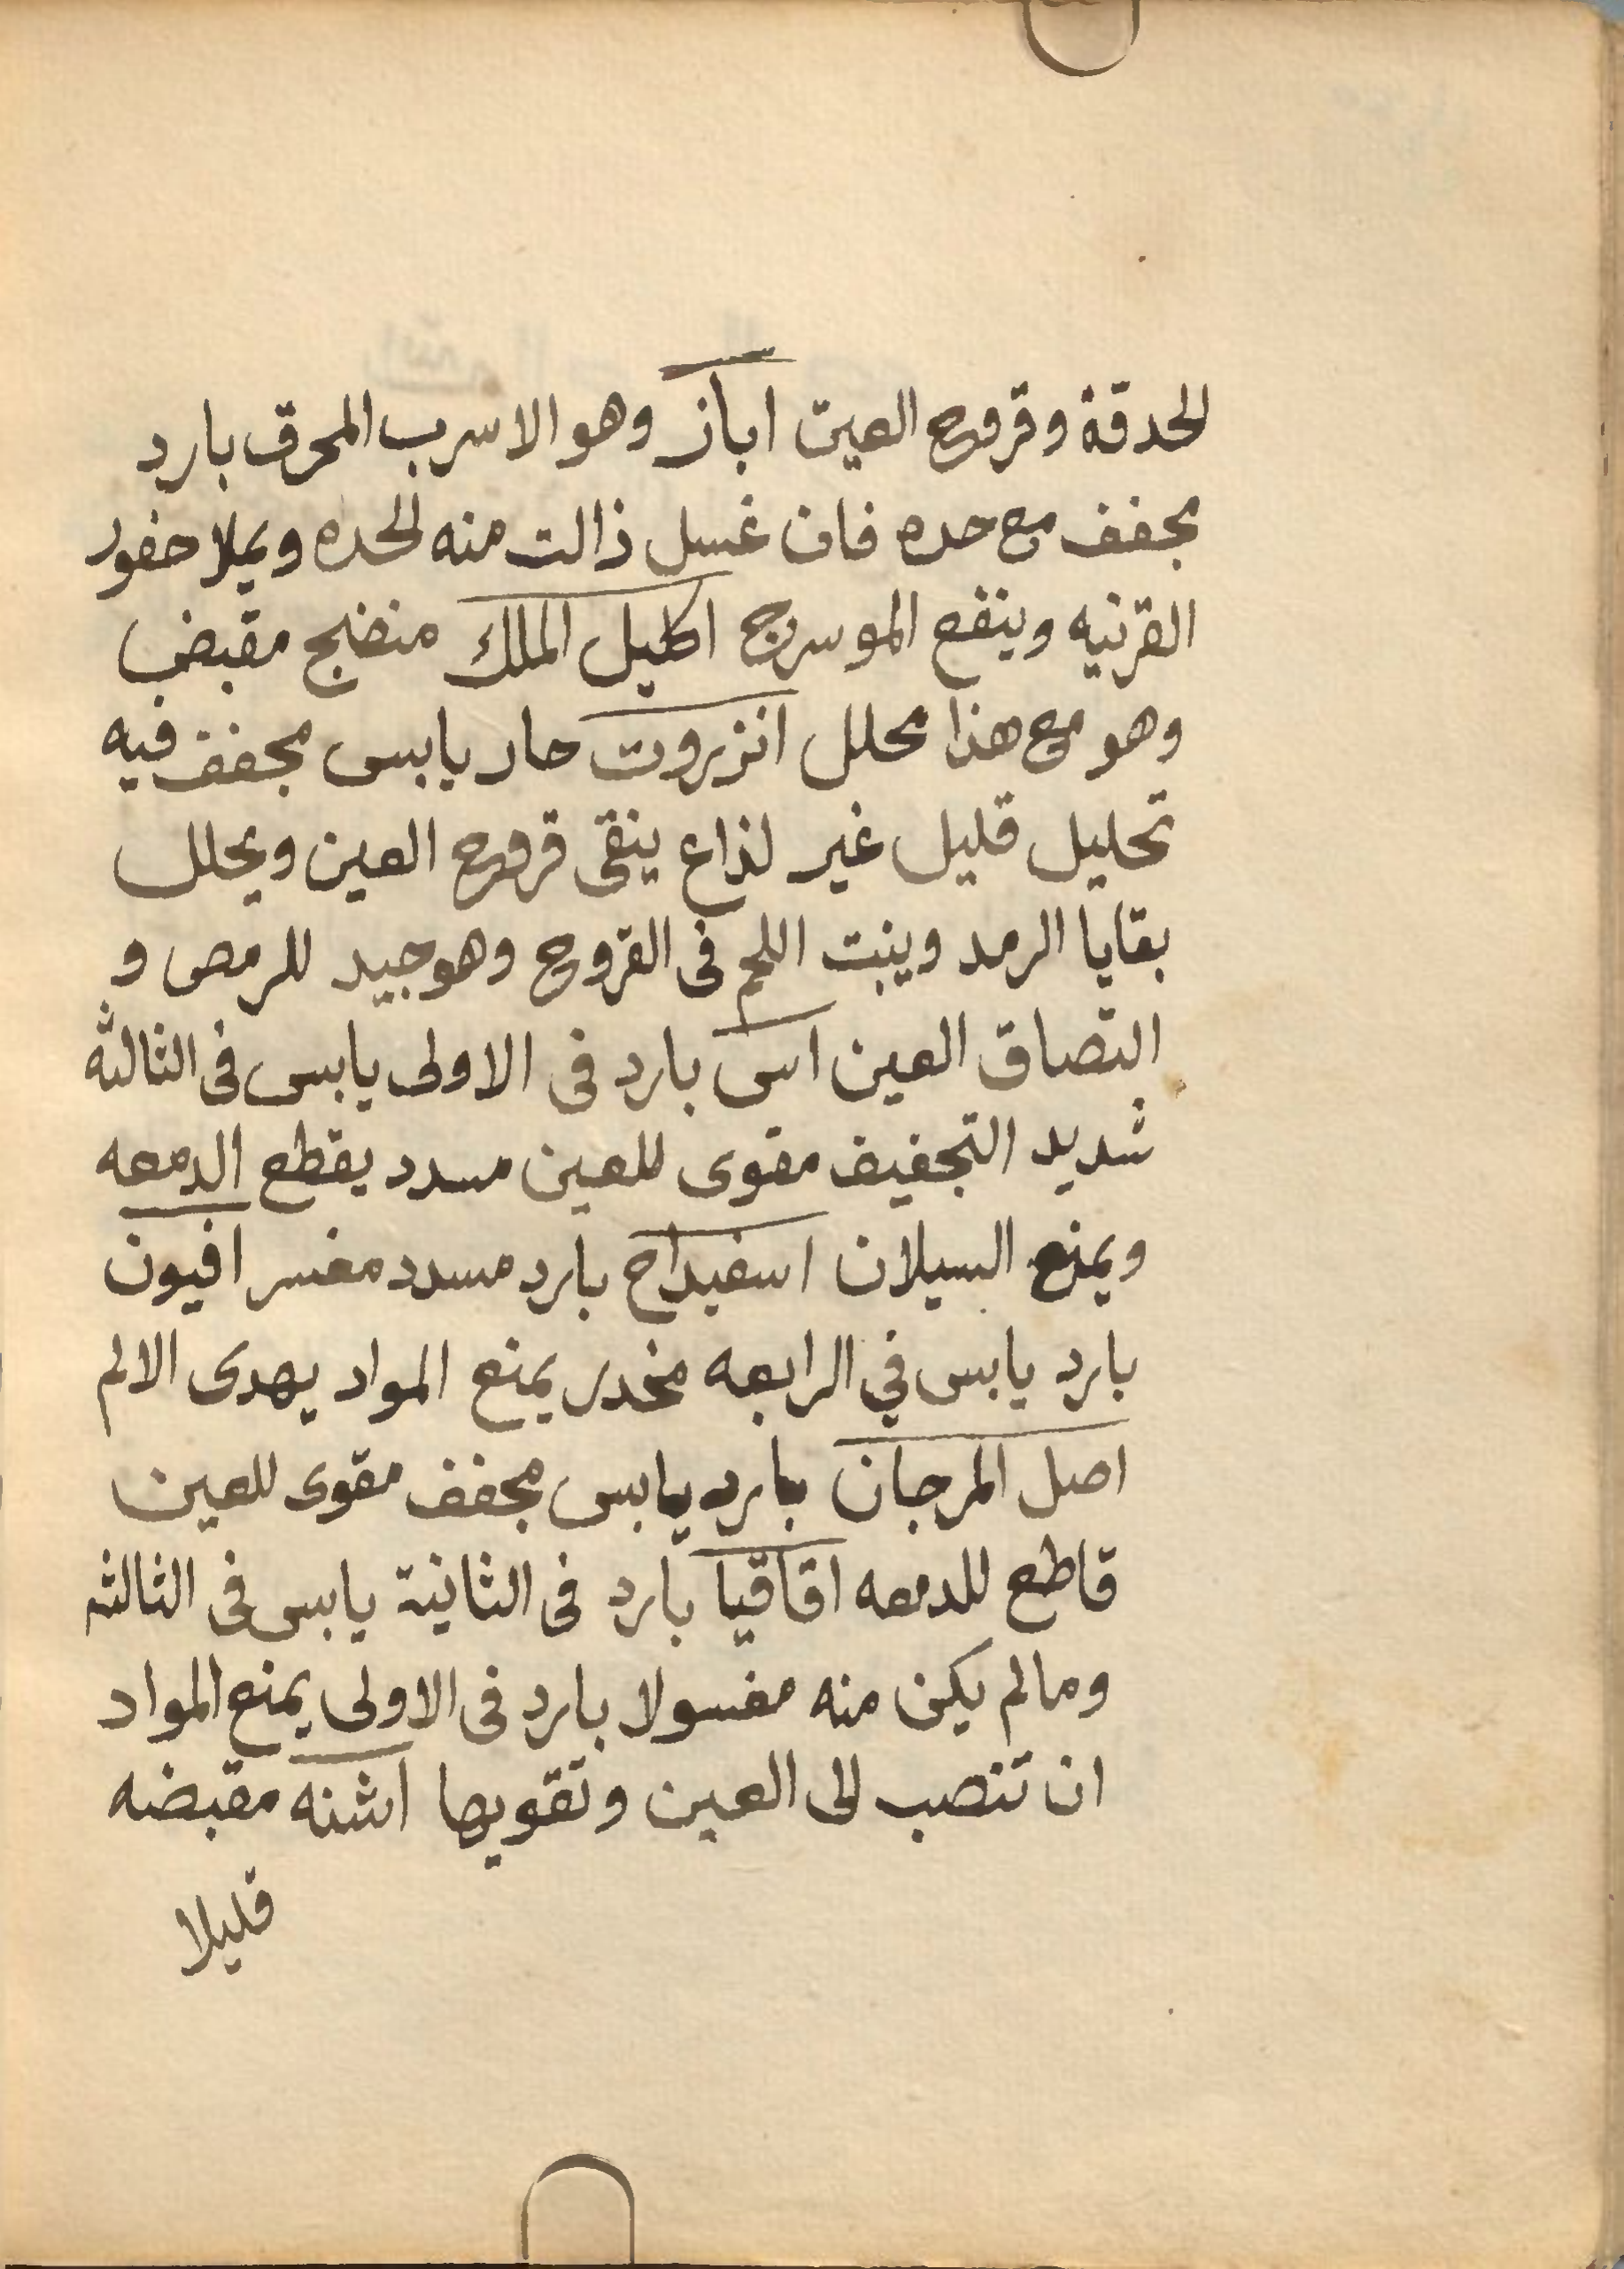 الحدقة وقروح العين اباز وهو الاسرب المحرق بارد
مجفف مع حده فان غسل زالت منه الحده ويملا حفور
القرنيه وينفع الموسرج اكليل الملك منضج مقبض
وهو مع هذا محلل انزروت حار يابس مجفف فيه
تحليل قليل غير لذاع ينقى قروح العين ويحلل
بقايا الرمد وينبت اللحم فى القروح وهو جيد للرمص و
التصاق العين اس بارد فى الاولى يابس فى الثالثه
شديد التجفيف مقوى للعين مسدد يقطع الدمعه
ويمنع السيلان اسفيداج بارد مسدد مغسر افيون
بارد يابس في الرابعه مخدر يمنع المواد يهدى الالم
اصل المرجان بارد يابس مجفف مقوى للعين
قاطع للدمعه اقاقيا بارد فى الثانية يابس فى الثالثه
ومالم يكن منه مغسولا بارد فى الاولى يمنع المواد
ان تنصب الى العين وتقويها اشنه مقبضه
قليلا